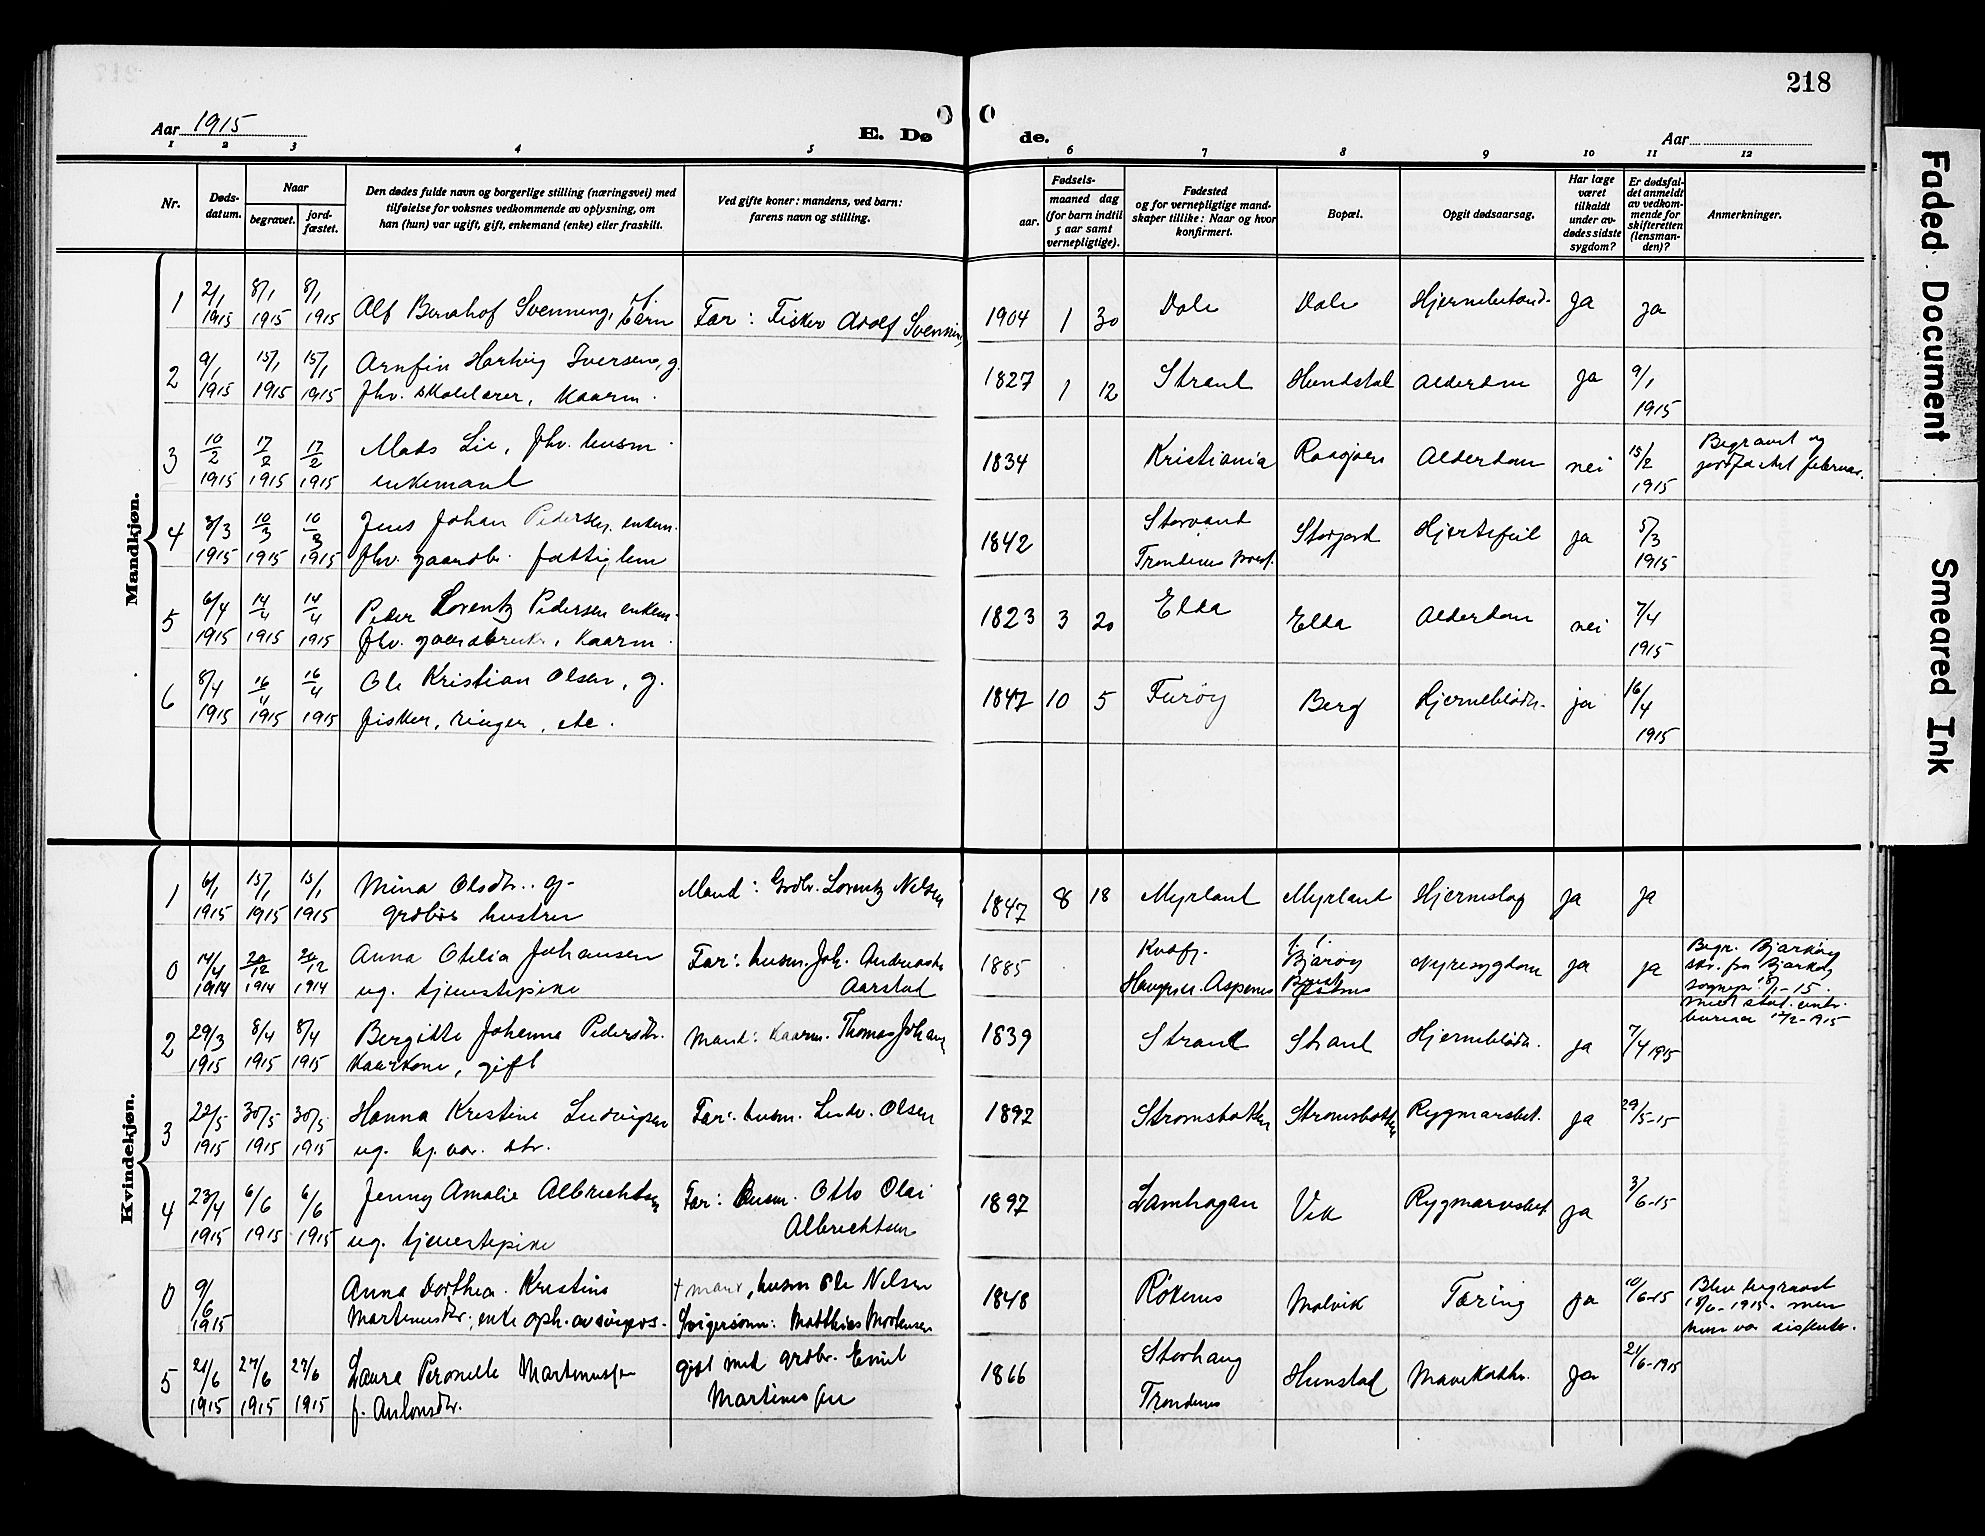 218
Aar 1915
E. Døde.
Aar
1 2 3 4 5 6 7 8 9 10 11 12
Nr.
Døds-
datum.
Naar
begravet.
jord-
fæstet.
Den dødes fulde navn og borgerlige stilling (næringsvei) med
tilføielse for voksnes vedkommende av oplysning, om
han (hun) var ugift, gift, enkemand (enke) eller fraskilt.
Ved gifte koner: mandens, ved barn:
farens navn og stilling.
Fødsels-
aar.
maaned dag
(for barn indtil
5 aar samt
vernepligtige).
Fødested
og for vernepligtige mand-
skaper tillike: Naar og hvor
konfirmert.
Bopæl.
Opgit dødsaarsag.
Har læge
været
tilkaldt
under av-
dødes sidste
sygdom?
Er dødsfal-
det anmeldt
av vedkom-
mende for
skifteretten
(lensman-
den)?
Anmerkninger.
Mandkjøn.
1 2/1 1915 8/1 1915 8/1 1915 Alf Bernhof Svenning, barn Far: Fisker Adolf Svenning 1904 1 30 Dale Dale Hjernebetænd. Ja ja
2 9/1 1915 15/1 1915 15/1 1915 Arnfin Hartvig Iversen, g.
fhv. skolelærer, kaarm. 1827 1 12 Strand Hundstad Alderdom Ja 9/1 1915
3 10/2 1915 17/2 1915 17/2 1915 Mads Lie, fhv. husm.
enkemand 1834 Kristiania Alderdom nei 15/2 1915 Begravet og
jordfæstet februar.
4 3/3 1915 10/3 1915 10/3 1915 Jens Johan Pedersen, enkem.
fhv. gaardbr. fattiglem 1842 Storvand
Trondenes Storjord Hjertefeil ja 5/3 1915
5 6/4 1915 14/4 1915 14/4 1915 Peder Lorentz Pedersen enkem.
fhv. gaardbruker, kaarm. 1823 3 20 Elda Elda Alderdom nei 7/4 1915
6 8/4 1915 16/4 1915 16/4 1915 Ole Kristian Olsen, g.
fisker, ringer, etc. 1847 10 5 Furøy Berg Hjerneblødn. ja 16/4 1915
Kvindekjøn.
1 6/1 1915 15/1 1915 15/1 1915 Mina Olsdtr.. g-
grdbrs hustru Mand: Grdbr. Lorentz Nilsen 1847 8 18 Myrland Myrland Hjerneslag Ja Ja
0 14/4 1914 20/12 1914 20/12 1914 Anna Otelia Johansen
ug. tjenestepike Far: husm. Joh. Andreas
Aarstad 1885 Kvæfj.
Aspenes Bjarøy Nyresygdom ja ja Begr. Bjarkøy
skr. fra Bjarkøy
sognepr. 18/1-15.
med stat. centr.
bureau 17/2-1915
2 29/3 1915 8/4 1915 8/4 1915 Bergitte Johanna Pedersdtr.
kaarkone, gift Mand: Kaarm. Thomas Johans 1839 Strand Strand Hjerneblødn. ja 7/4 1915
3 22/5 1915 30/5 1915 30/5 1915 Hanna Kristine Ludvigsen
ug. hj.vær. dtr. Far: husm. Ludv. Olsen 1897 Strømsbotten Strømsbotten Rygmarsbet. Ja 29/5-15
4 23/4 1915 6/6 1915 6/6 1915 Jenny Amalie Albrichtsen
ug. tjenestepike Far: Husm. Otto Olai
Albrichtsen 1897 Lamhagan Vik Rygmarvsbet. Ja 3/6-15
0 9/6 1915 Anna Dorthea Kristine
Martinusdtr., enke oph. av svigers. + mand, husm Ole Nilsen
Svigersønn: Matthias Mortensen 1848 Røkenes Molvik Tæring ja 10/6-15 Blev begravet
1915. men
hun var dissenter.
5 21/6 1915 27/6 1915 27/6 1915 Laura Peronelle Martinussen
f. Antonsdtr. gift med grdbr. Emil
Martinussen 1866 Storhaug
Trondenes Hunstad Mavekatarr. Ja 21/6-1915
Faded Document
Smeared Ink